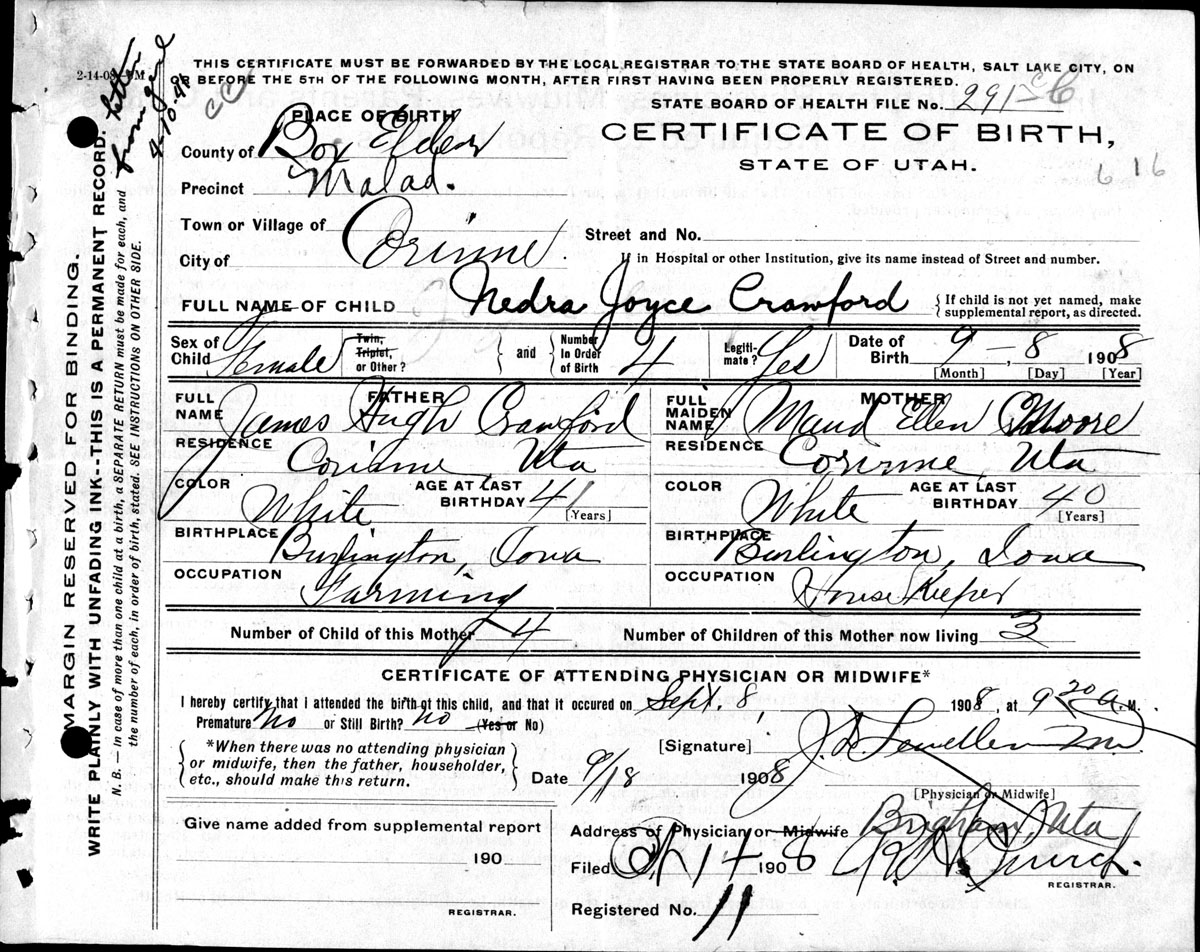 2-14-08
THIS CERTIFICATE MUST BE FORWARDED BY THE LOCAL REGISTRAR TO THE STATE BOARD OF HEALTH, SALT LAKE CITY, ON
OR BEFORE THE 5TH OF THE FOLLOWING MONTH, AFTER FIRST HAVING BEEN PROPERLY REGISTERED.
STATE BOARD OF HEALTH FILE No. 291-C6
PLACE OF BIRTH
CERTIFICATE OF BIRTH,
STATE OF UTAH.
6 16
County of Box Elder
Precinct Malad.
Town or Village of
City of Corinne.
Street and No.
If in Hospital or other Institution, give its name instead of Street and number.
FULL NAME OF CHILD Nedra Joyce Crawford {If child is not yet named, make
supplemental report, as directed.
Sex of Child Female
Twin, Triplet, or Other?
and
Number In Order of Birth 4
Legiti-mate? Yes
Date of Birth 9-8 1908
[Month] [Day] [Year]
FATHER
FULL NAME James Hugh Crawford
RESIDENCE Corinne, Uta
COLOR White
AGE AT LAST BIRTHDAY 41
[Years]
BIRTHPLACE Burlington, Iowa
OCCUPATION Farming
MOTHER
FULL MAIDEN NAME Maud Ellen Moore
RESIDENCE Corinne, Uta
COLOR White
AGE AT LAST BIRTHDAY 40
[Years]
BIRTHPLACE Burlington, Iowa
OCCUPATION House Keeper
Number of Child of this Mother 4
Number of Children of this Mother now living 3
CERTIFICATE OF ATTENDING PHYSICIAN OR MIDWIFE*
I hereby certify that I attended the birth of this child, and that it occured on Sept. 8, 1908, at 9 20 a.M.
Premature No or Still Birth? no (Yes or No)
{*When there was no attending physician
or midwife, then the father, householder,
etc., should make this return.}
[Signature]
Date 9/18 1908
[Physician or Midwife]
Address of Physician or Midwife Brigham, Uta
Filed 14 1908
REGISTRAR.
Registered No. 11
Give name added from supplemental report
190
REGISTRAR.
MARGIN RESERVED FOR BINDING.
WRITE PLAINLY WITH UNFADING INK--THIS IS A PERMANENT RECORD.
N. B. — In case of more than one child at a birth, a SEPARATE RETURN must be made for each, and
the number of each, in order of birth, stated. SEE INSTRUCTIONS ON OTHER SIDE.